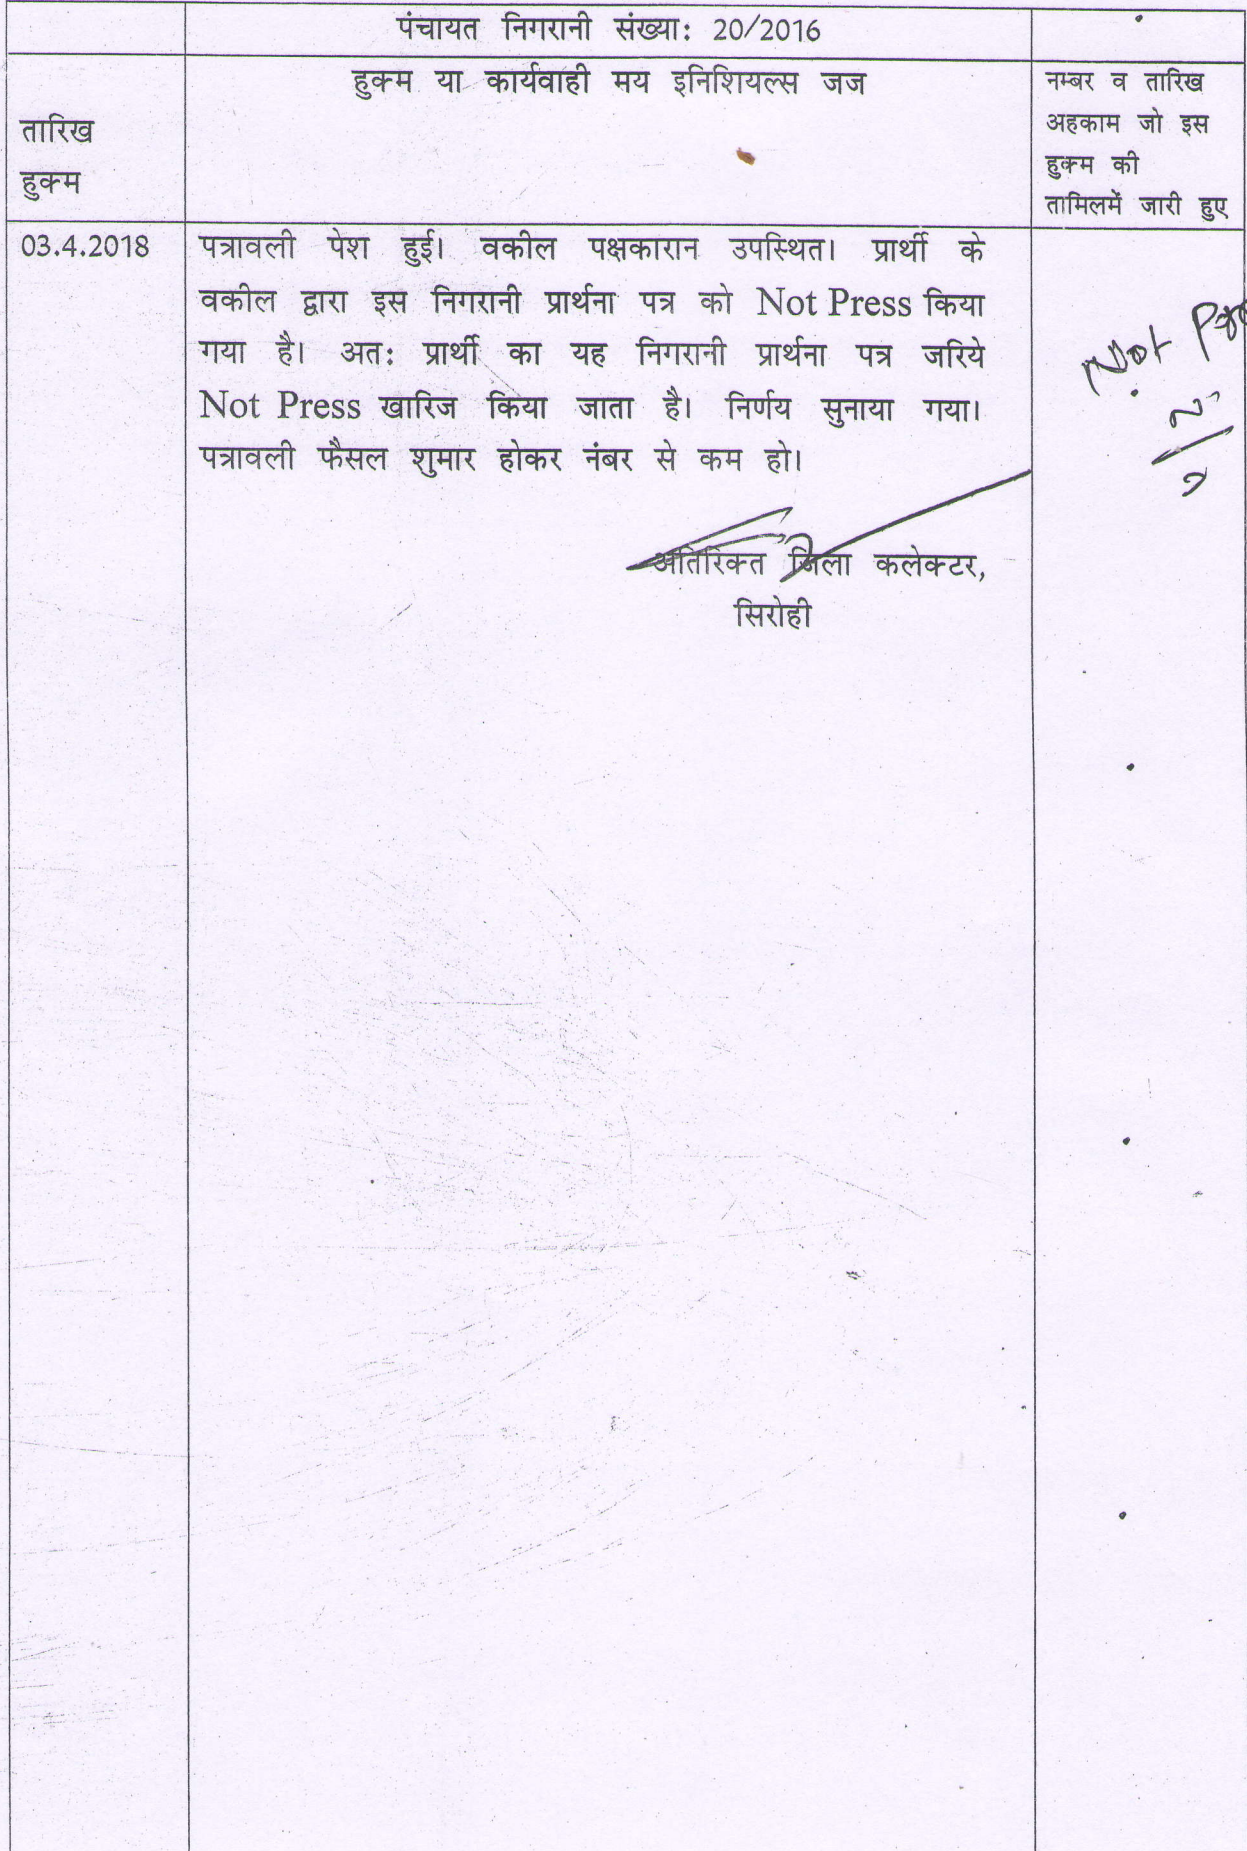 पंचायत निगरानी संख्या: 20/2016
तारिख
हुक्म
हुक्म या कार्यवाही मय इनिशियल्स जज
नम्बर व तारिख
अहकाम जो इस
हुक्म की
तामिलमें जारी हुए
03.4.2018
पत्रावली पेश हुई। वकील पक्षकारान उपस्थित। प्रार्थी के
वकील द्वारा इस निगरानी प्रार्थना पत्र को Not Press किया
गया है। अत: प्रार्थी का यह निगरानी प्रार्थना पत्र जरिये
Not Press खारिज किया जाता है। निर्णय सुनाया गया।
पत्रावली फैसल शुमार होकर नंबर से कम हो।
अतिरिक्त जिला कलेक्टर,
सिरोही
Not